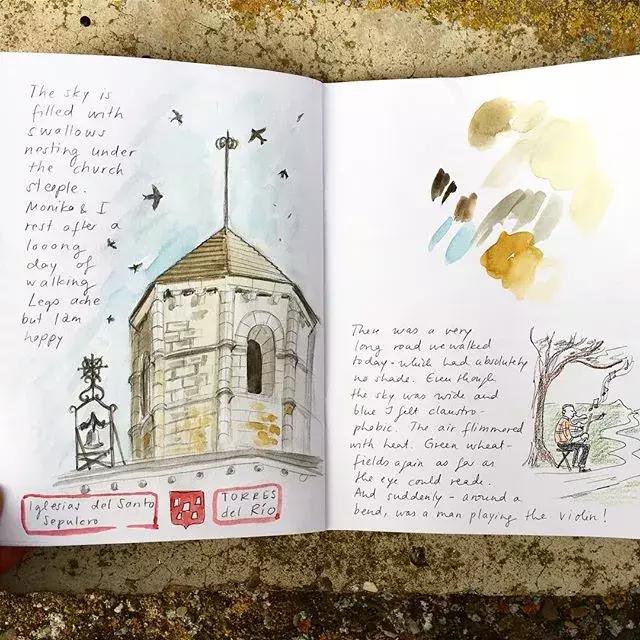 The sky is
filled with
swallows
nesting under
the church
steeple.
Monika & I
rest after a
looong
day of
walking
Legs ache
but I am
happy
Iglesias del Santo
Sepulcro
TORRES
del RÍO
There was a very
long road we walked
today - which had absolutely
no shade. Even though
the sky was wide and
blue I felt claustro-
phobic. The air flimmered
with heat. Green wheat-
fields again as far as
the eye could reade.
And suddenly - around a
bend, was a man playing the violin!